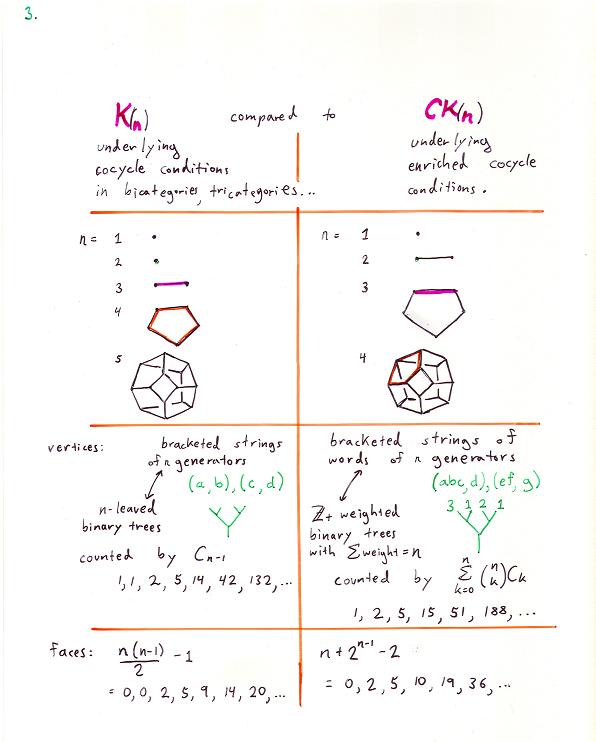 3.
K(n) compared to CK(n)
underlying
cocycle conditions
in bicategories, tricategories...
underlying
enriched cocycle
conditions.
n= 1
2
3
4
5
n= 1
2
3
4
vertices: bracketed strings
of n generators
(a, b), (c, d)
n-leaved
binary trees
counted by C_{n-1}
1, 1, 2, 5, 14, 42, 132, ...
bracketed strings of
words of n generators
(abc, d), (ef, g)
3 1 2 1
Z+ weighted
binary trees
with Σweight = n
counted by \sum_{k=0}^{n} \binom{n}{k} C_k
1, 2, 5, 15, 51, 188, ...
faces: \frac{n(n-1)}{2} - 1
= 0, 0, 2, 5, 9, 14, 20, ...
n + 2^{n-1} - 2
= 0, 2, 5, 10, 19, 36, ...